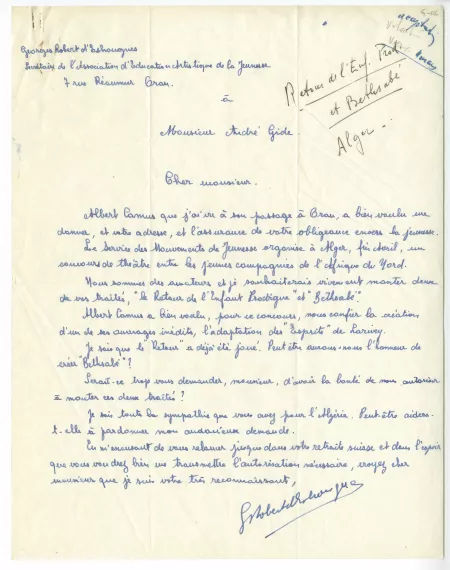 Georges Robert d'Eshougues
Secrétaire de l'Association d'Education Artistique de la Jeunesse
7 rue Réaumur Oran.
à
Monsieur André Gide.
Retour de l'Enf. Prod.
et Bethsabé
Alger.
Cher monsieur.
Albert Camus que j'ai vu à son passage à Oran, a bien voulu me
donner, et votre adresse, et l'assurance de votre obligeance envers la jeunesse.
Le Service des Mouvements de Jeunesse organise à Alger, fin avril, un
concours de théâtre entre les jeunes compagnies de l'Afrique du Nord.
Nous sommes des amateurs et je souhaiterais vivement monter deux
de vos traités, "le Retour de l'Enfant Prodigue" et "Bethsabé".
Albert Camus a bien voulu, pour ce concours, nous confier la création
d'un de ses ouvrages inédits, l'adaptation des "Esprits" de Larivey.
Je sais que le "Retour" a déjà été joué. Peut être aurons-nous l'honneur de
créer "Bethsabé"?
Serait-ce trop vous demander, monsieur, d'avoir la bonté de nous autoriser
à monter ces deux traités?
Je sais toute la sympathie que vous avez pour l'Algérie. Peut-être aidera-
t-elle à pardonner mon audacieuse demande.
En m'excusant de vous relancer jusque dans votre retraite suisse et dans l'espoir
que vous voudrez bien me transmettre l'autorisation nécessaire, croyez cher
monsieur que je suis votre très reconnaissant,